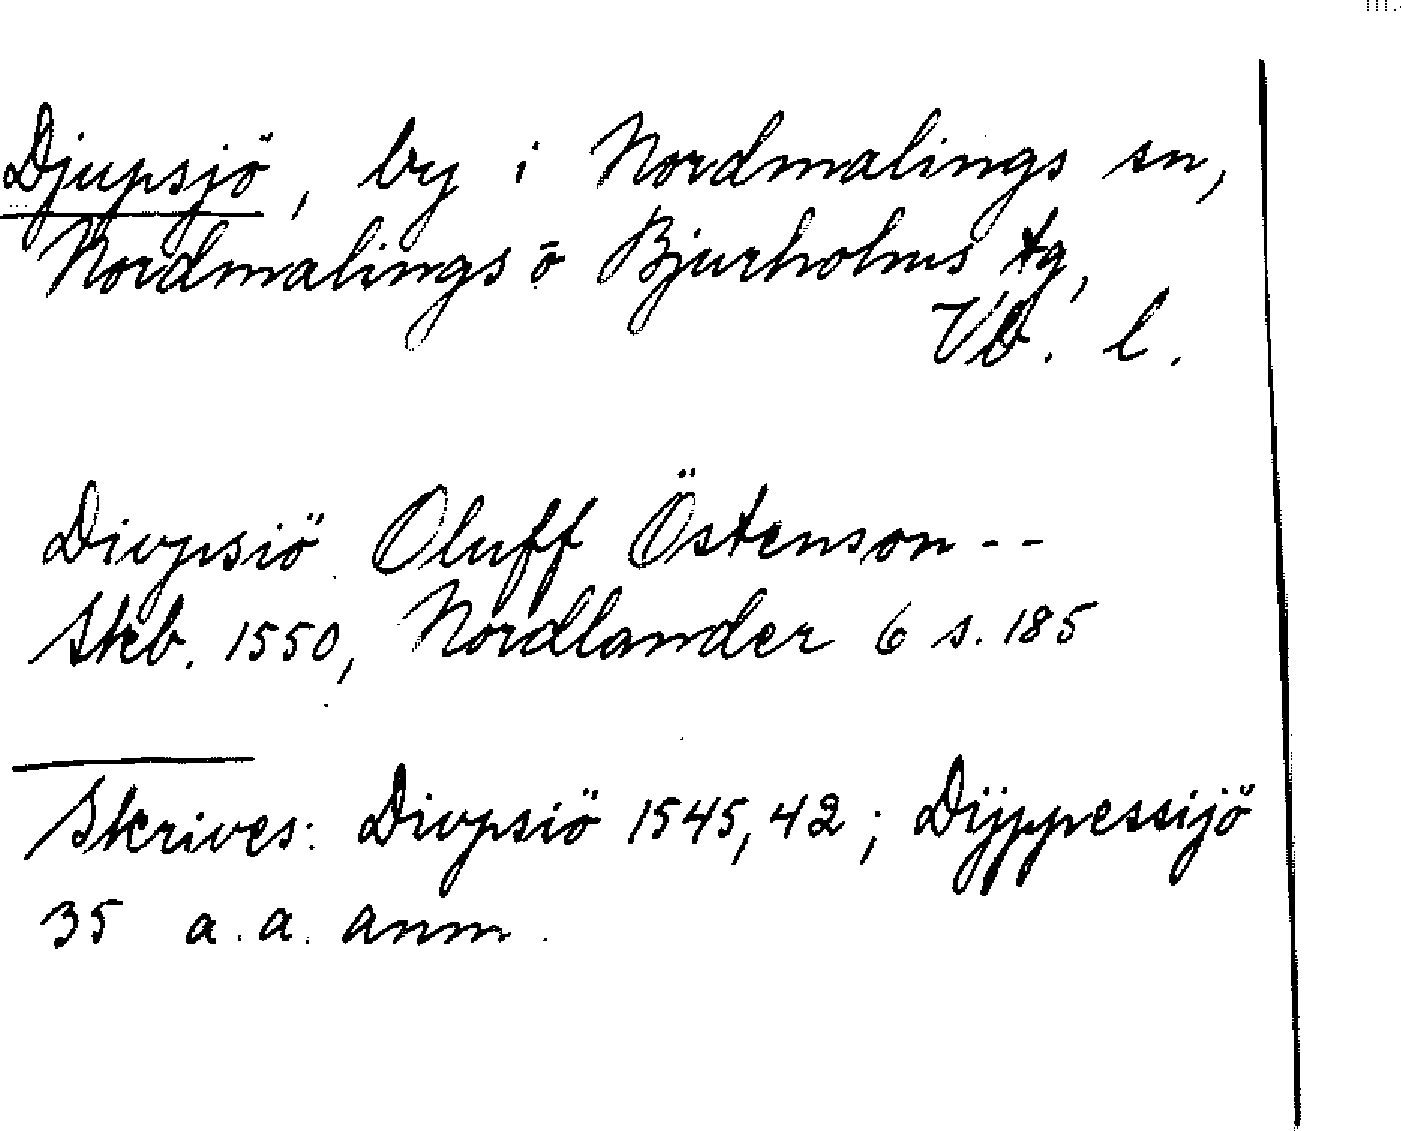 Djupsjö, by i Nordmalings sn,
Nordmalings o Bjurholms tg,
Vb. l.
Divpsiö Oluff Östenson--
Skb. 1550, Nordlander 6 s. 185
Skrives: Divpsiö 1545, 42; Dijppessijö
35 a.a. anm.